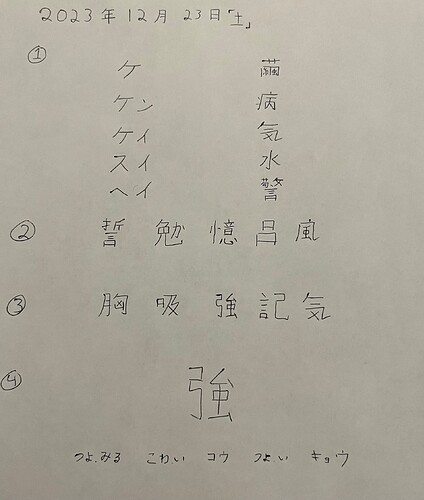 2023年12月23日「土」
① ケ 繭
ケン 病
ケイ 気
スイ 水
ヘイ 警
② 誓 勉 憶 呂 風
③ 胸 吸 強 記 気
④ 強
つよ.みる こわ.い コウ つよ.い キョウ